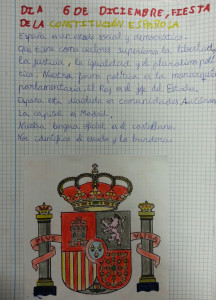 DIA 6 DE DICIEMBRE, FIESTA
DE LA CONSTITUCIÓN ESPAÑOLA
España es un estado social y democrático.
Que tiene como valores superiores la libertad,
la justicia, la igualdad y el pluralismo polí-
tico. Nuestra forma política es la monarquía
parlamentaria. El Rey es el jefe del Estado.
España está dividida en comunidades Autónomas
La capital es Madrid.
Nuestra lengua oficial es el castellano.
Nos identifica el escudo y la bandera.
PLUS
ULTRA